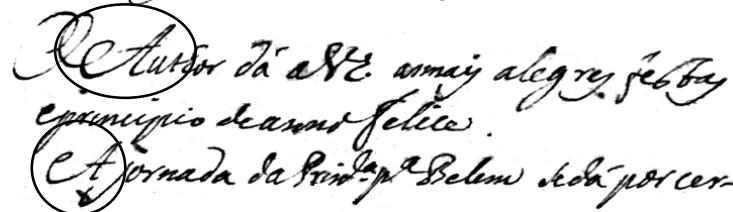 O Author dá a V E. as mais alegres festas
e principio de anno felice.
A jornada da Prinda. pa. Belem se dá por cer-